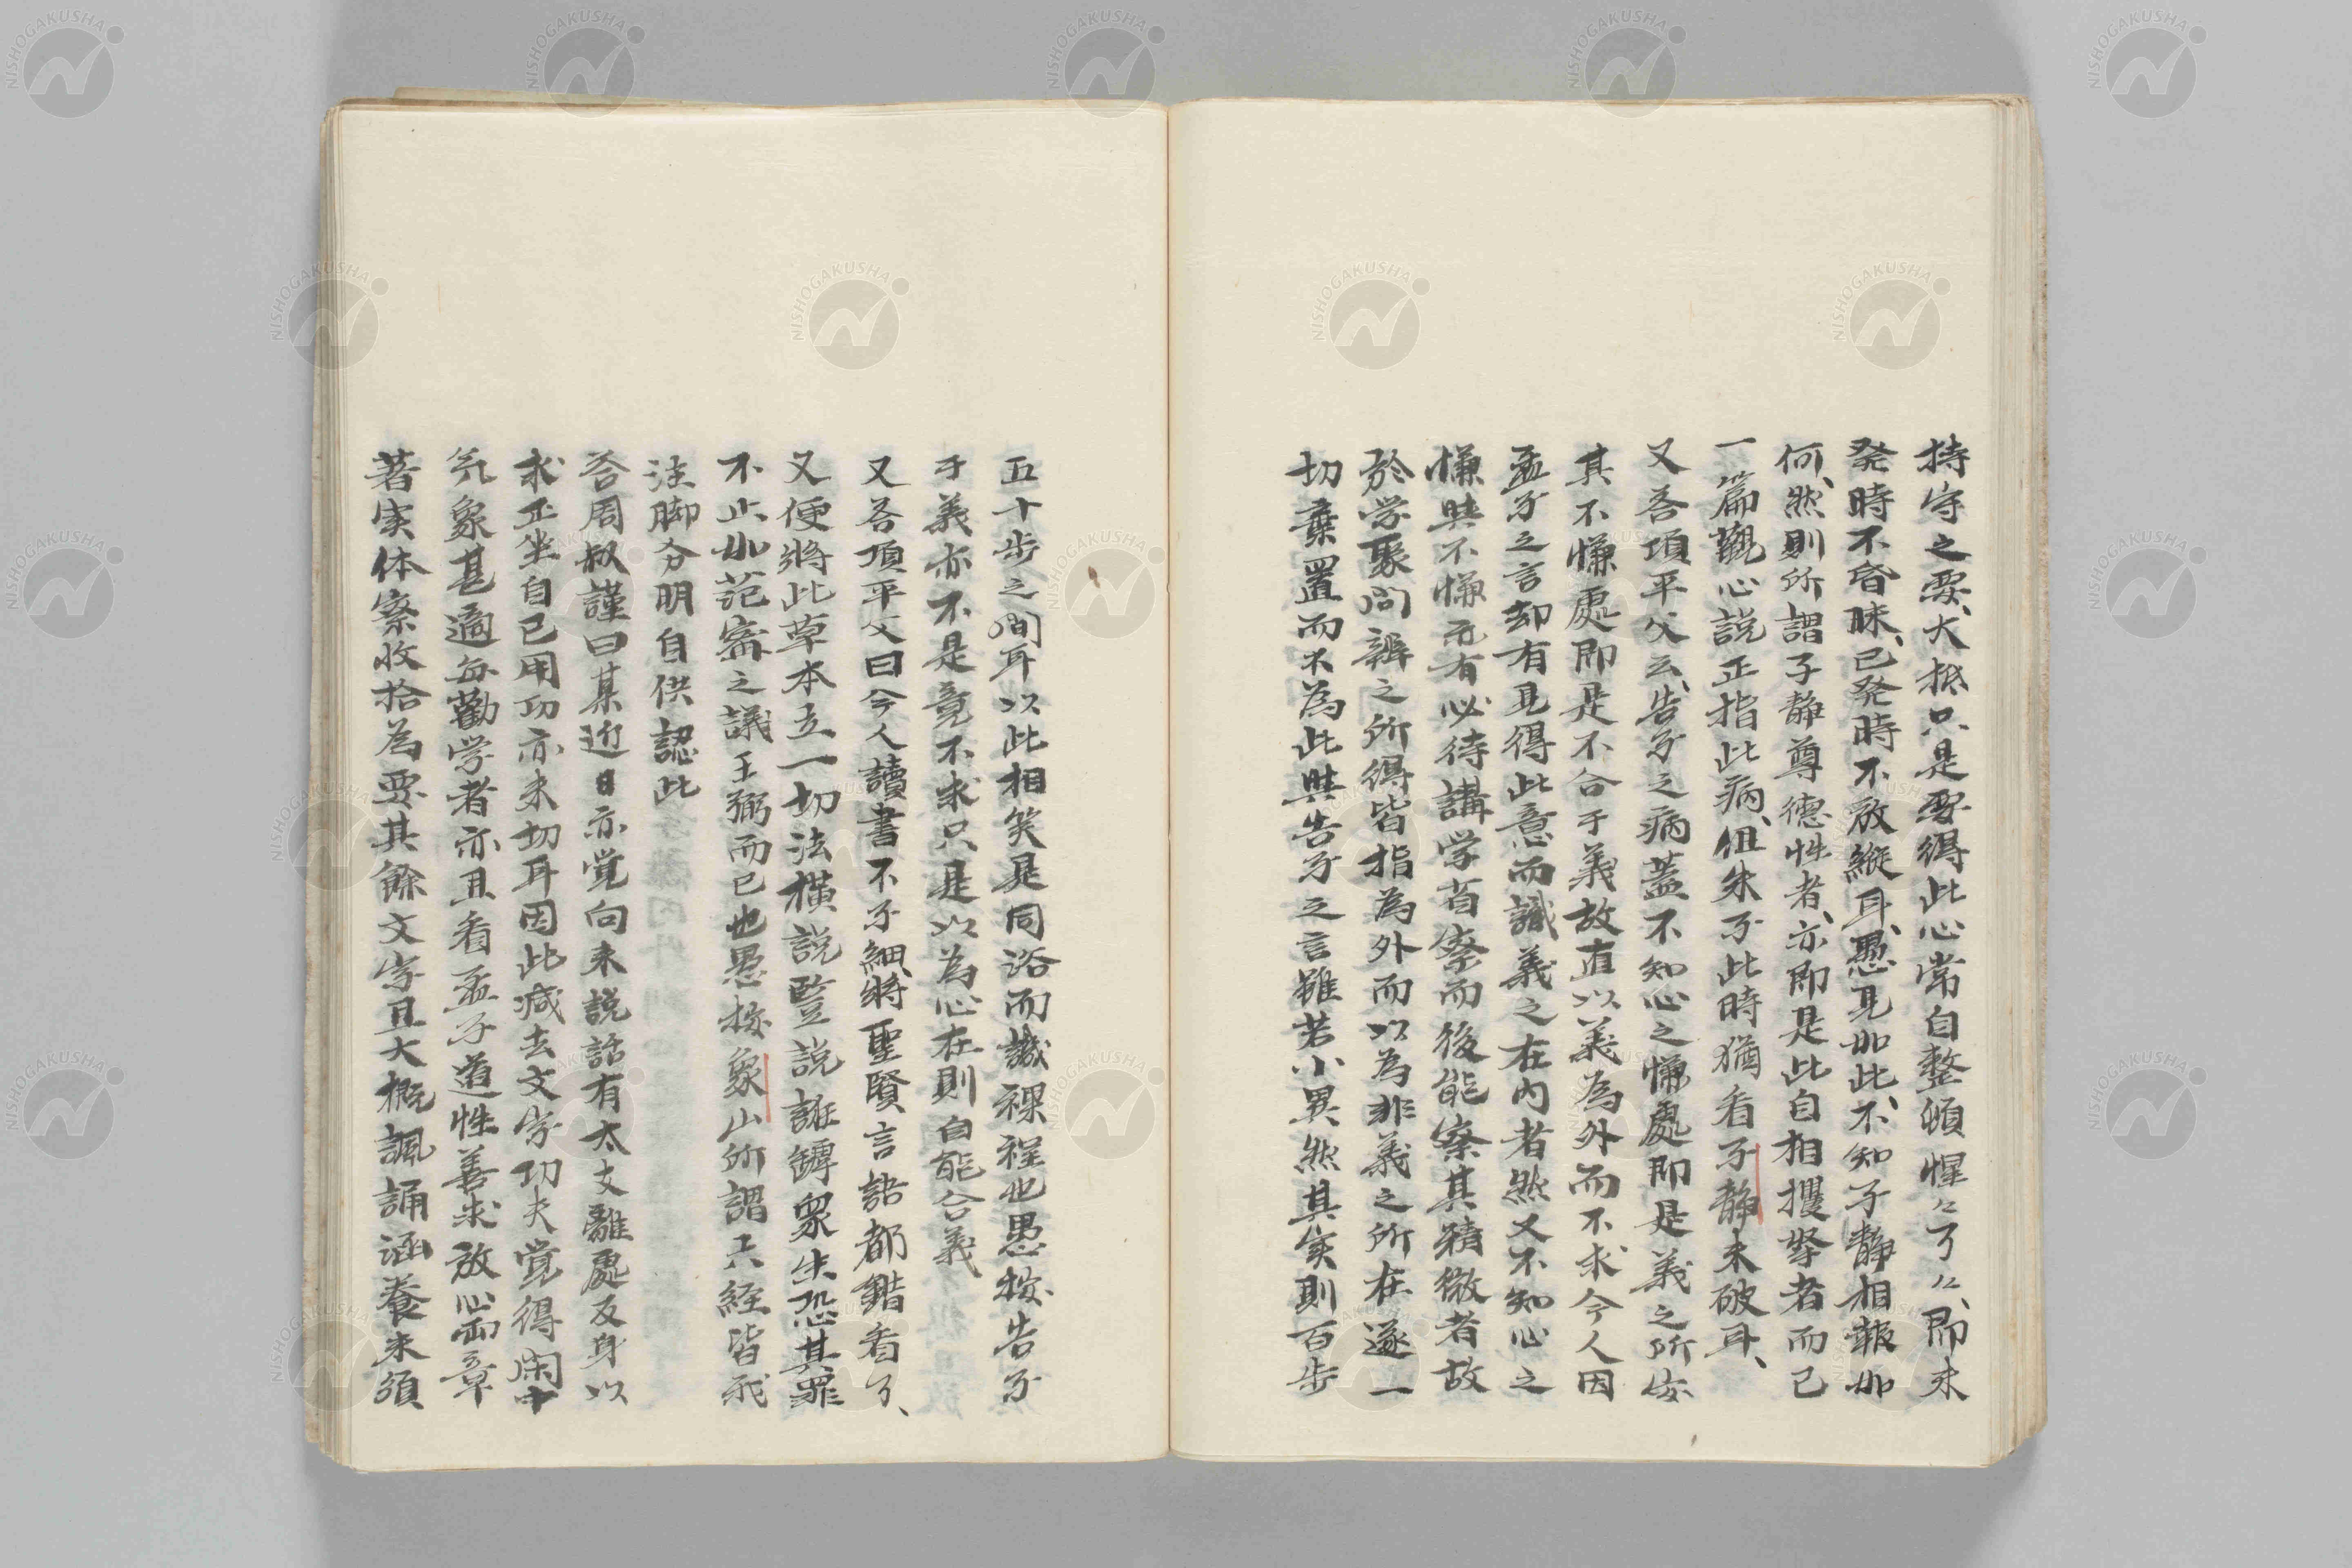 持守之要、大抵只是要得此心常自整頓惺〻了〻、即未
発時不昏昧、已発時不放縦耳、愚見如此、不知子静相報如
何、然則所謂子静尊德性者、亦即是此自相攫拏者而已
一篇觀心說正指此病、但朱子此時猶看子静未破耳、
又荅項平父云、告子之病蓋不知心之慊處即是義之所安
其不慊處即是不合于義故直以義為外而不求今人因
孟子之言却有見得此意而識義之在内者然又不知心之
慊與不慊亦有必待講学省察而後能察其精微者故
於学聚問辨之所得皆指為外而以為非義之所在遂一
切棄置而不為此與告子之言雖若小異然其実則百歩
五十歩之間耳以此相笑是同浴而譏裸裎也愚按告子
于義亦不是竟不求只是以為心在則自能合義
又荅項平父曰今人讀書不子細、將聖賢言語都錯看了、
又便將此草本立一切法橫說豎說誑嚇衆生恐其罪
不止如范甯之議王弼而已也愚按象山所謂六経皆我
注脚分明自供認此
荅周叔謹曰某近日亦覚向来説話有太支離處反身以
求正坐自己用功亦未切耳因此減去文字功夫覚得閑中
気象甚適每勸学者亦且看孟子道性善求放心兩章
著実体察收拾為要其餘文字且大概諷誦涵養未須
NISHOGAKUSHA